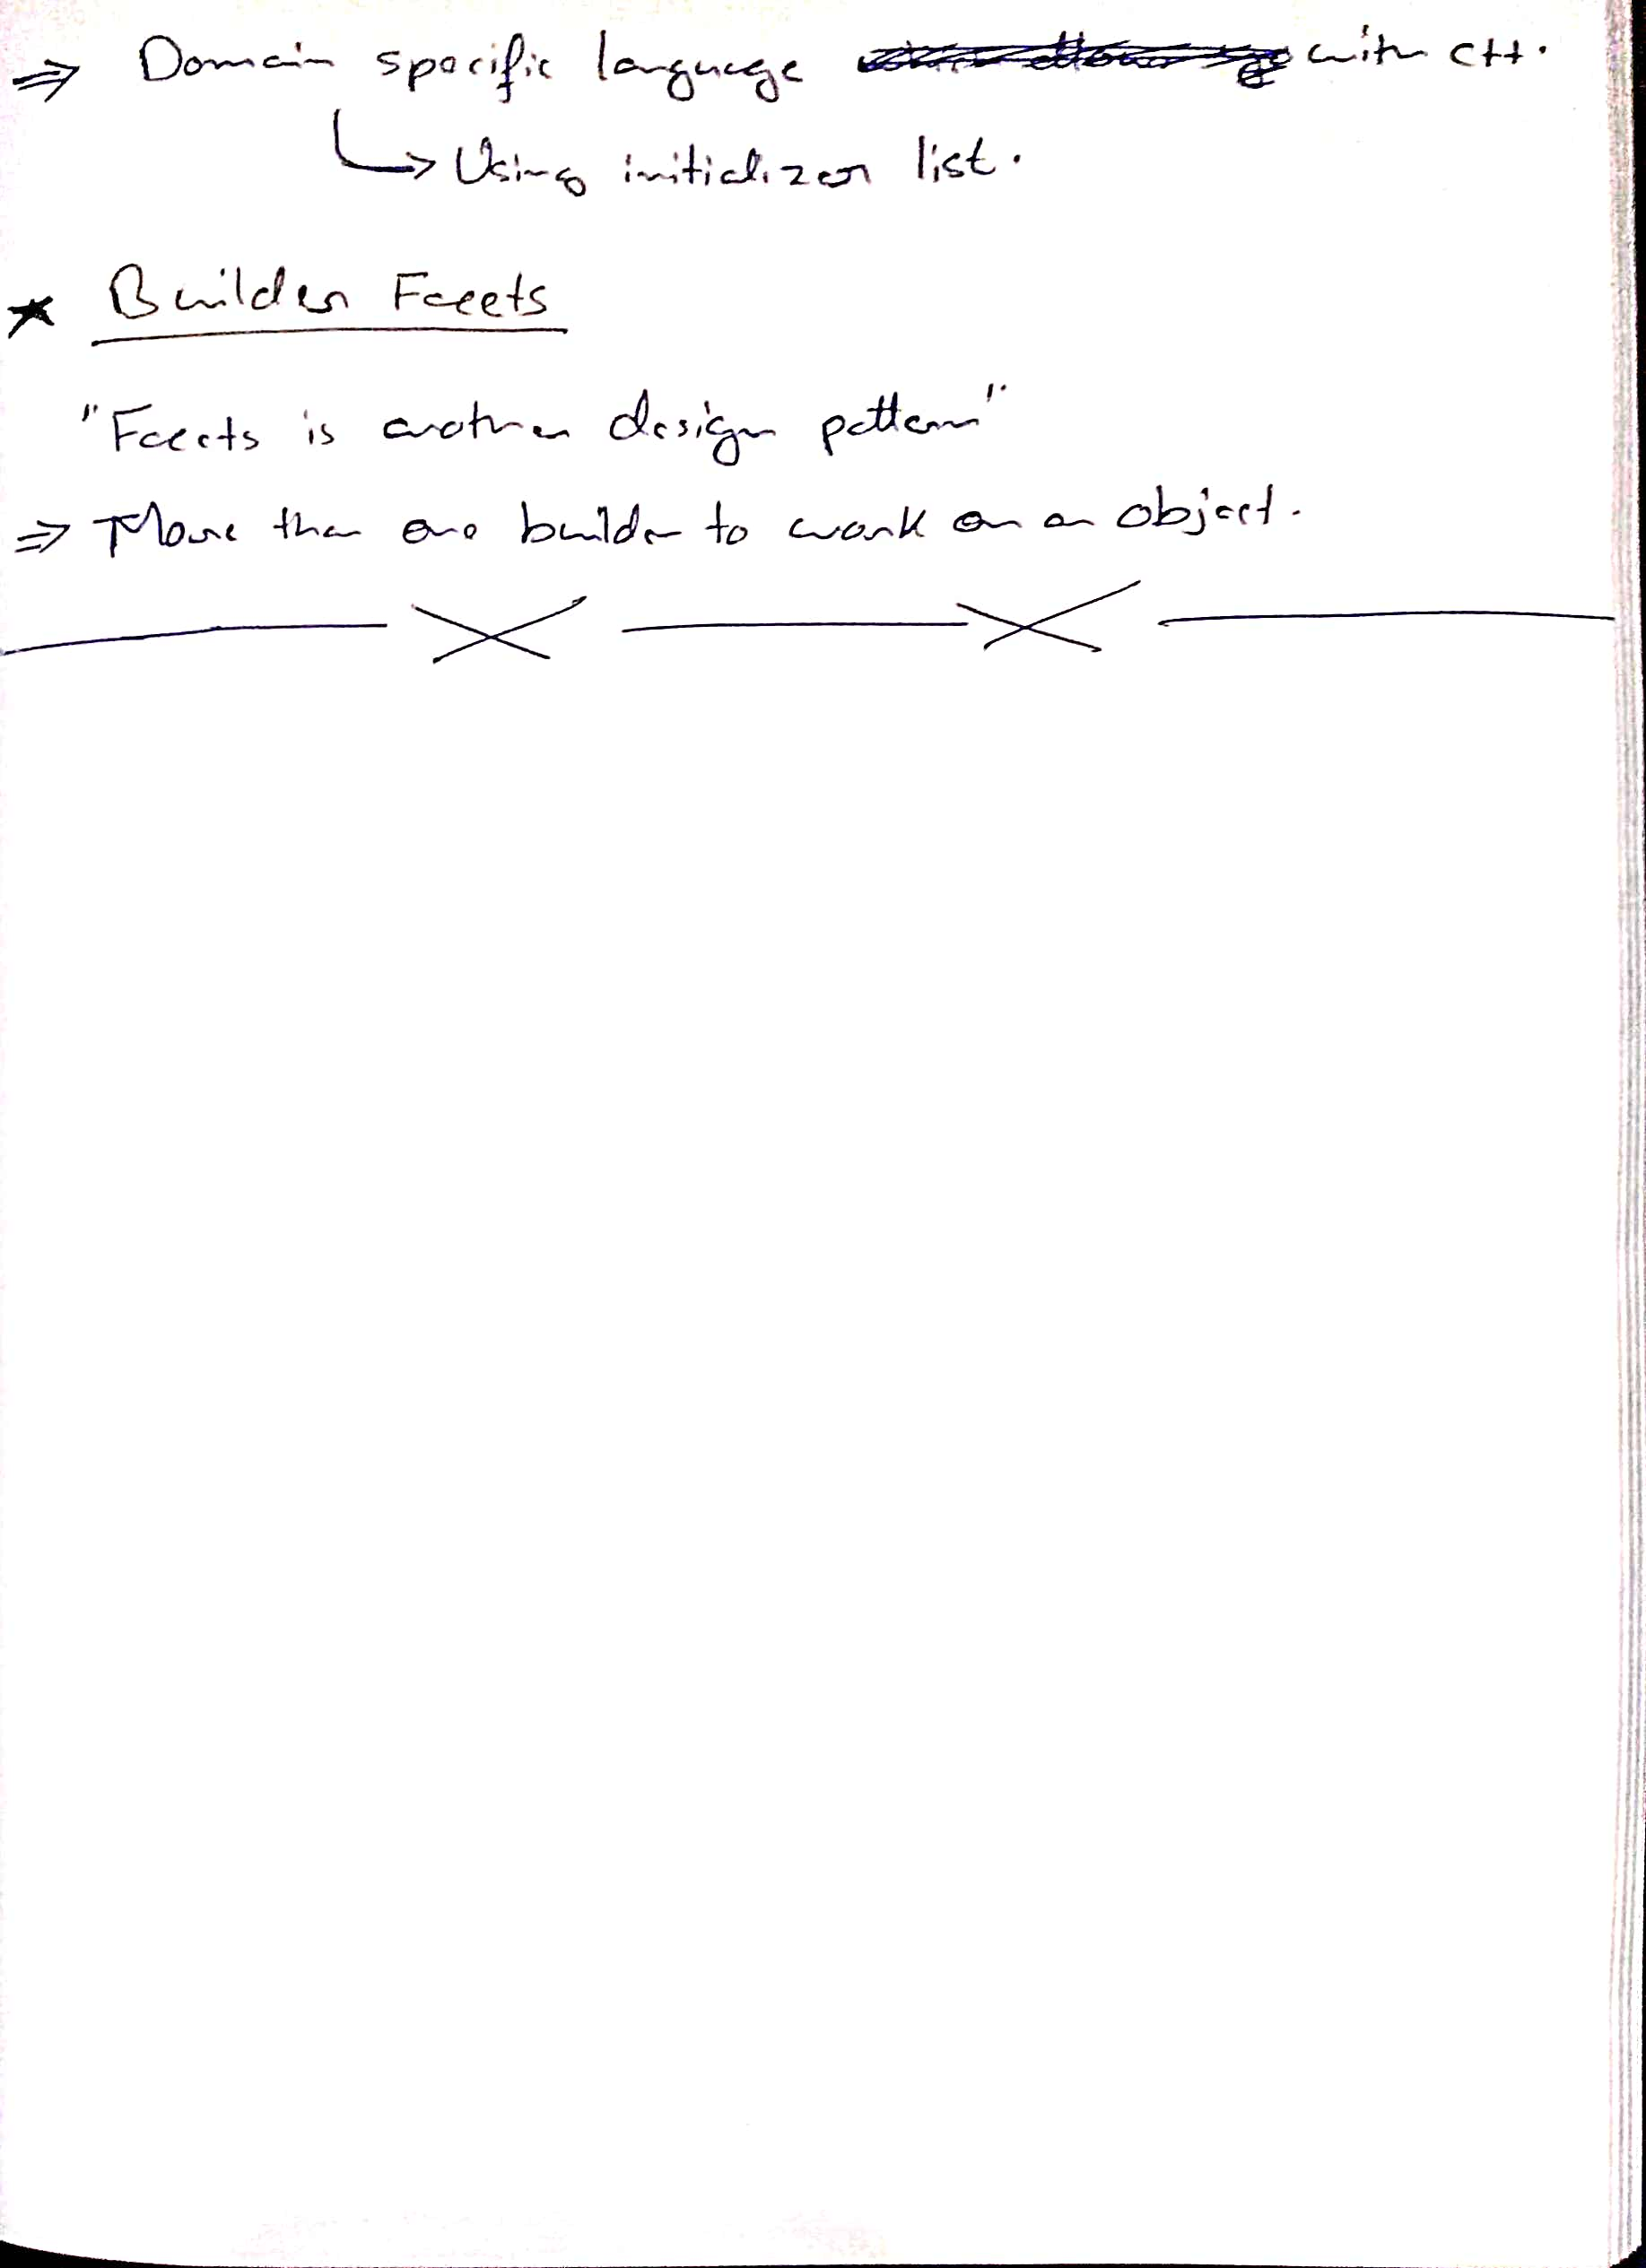 ⇒ Domain specific language with C++.
↳ Using initializer list.
* Builder Facets
"Facets is another design pattern"
⇒ More than one builder to work on an object.